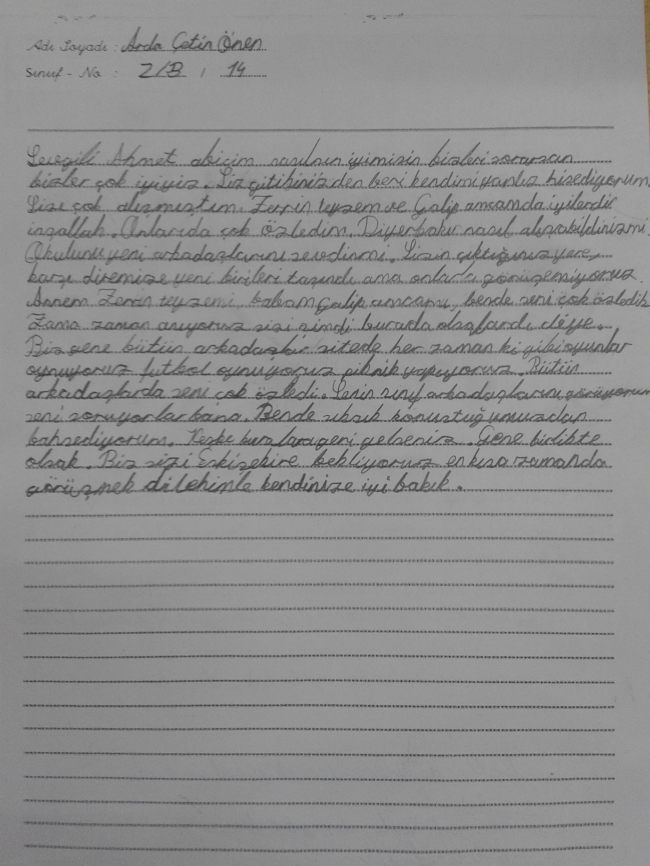 Adı Soyadı : Arda Çetin Önen
Sınıf - No : 2/B / 14
Sevgili Ahmet abiçim nasılsın iyimisin bizleri sorarsan
bizler çok iyiyiz. Siz gitiğinizden beri kendimi yanlız hisediyorum.
Size çok alışmıştım. Zerrin teyzem ve Galip amcamda iyilerdir
inşallah. Onlarıda çok özledim. Diyerbakır nasıl alışabildinizmi.
Okulunu yeni arkadaşlarını sevedinmi. Sizin çıktığınız yere,
karşı diremize yeni birileri taşındı ama onlarla görüşemiyoruz.
Annem Zerrin teyzemi, babam Galip amcamı, bende seni çok özledik.
Zama zaman anıyoruz sizi şimdi burada olsalardı diye.
Biz gene bütün arkadaşlar sitede her zaman ki gibi oyunlar
oynuyoruz futbol oynuyoruz piknik yapıyoruz. Bütün
arkadaşlarda seni çok özledi. Senin sınıf arkadaşlarını görüyorum
seni soruyorlar bana. Bende sıksık konuştuğumuzdan
bahsediyorum. Keşke buralara geri gelseniz. Gene birlikte
olsak. Biz sizi Eskişehire bekliyoruz en kısa zamanda
görüşmek dileğimle kendinize iyi bakık.